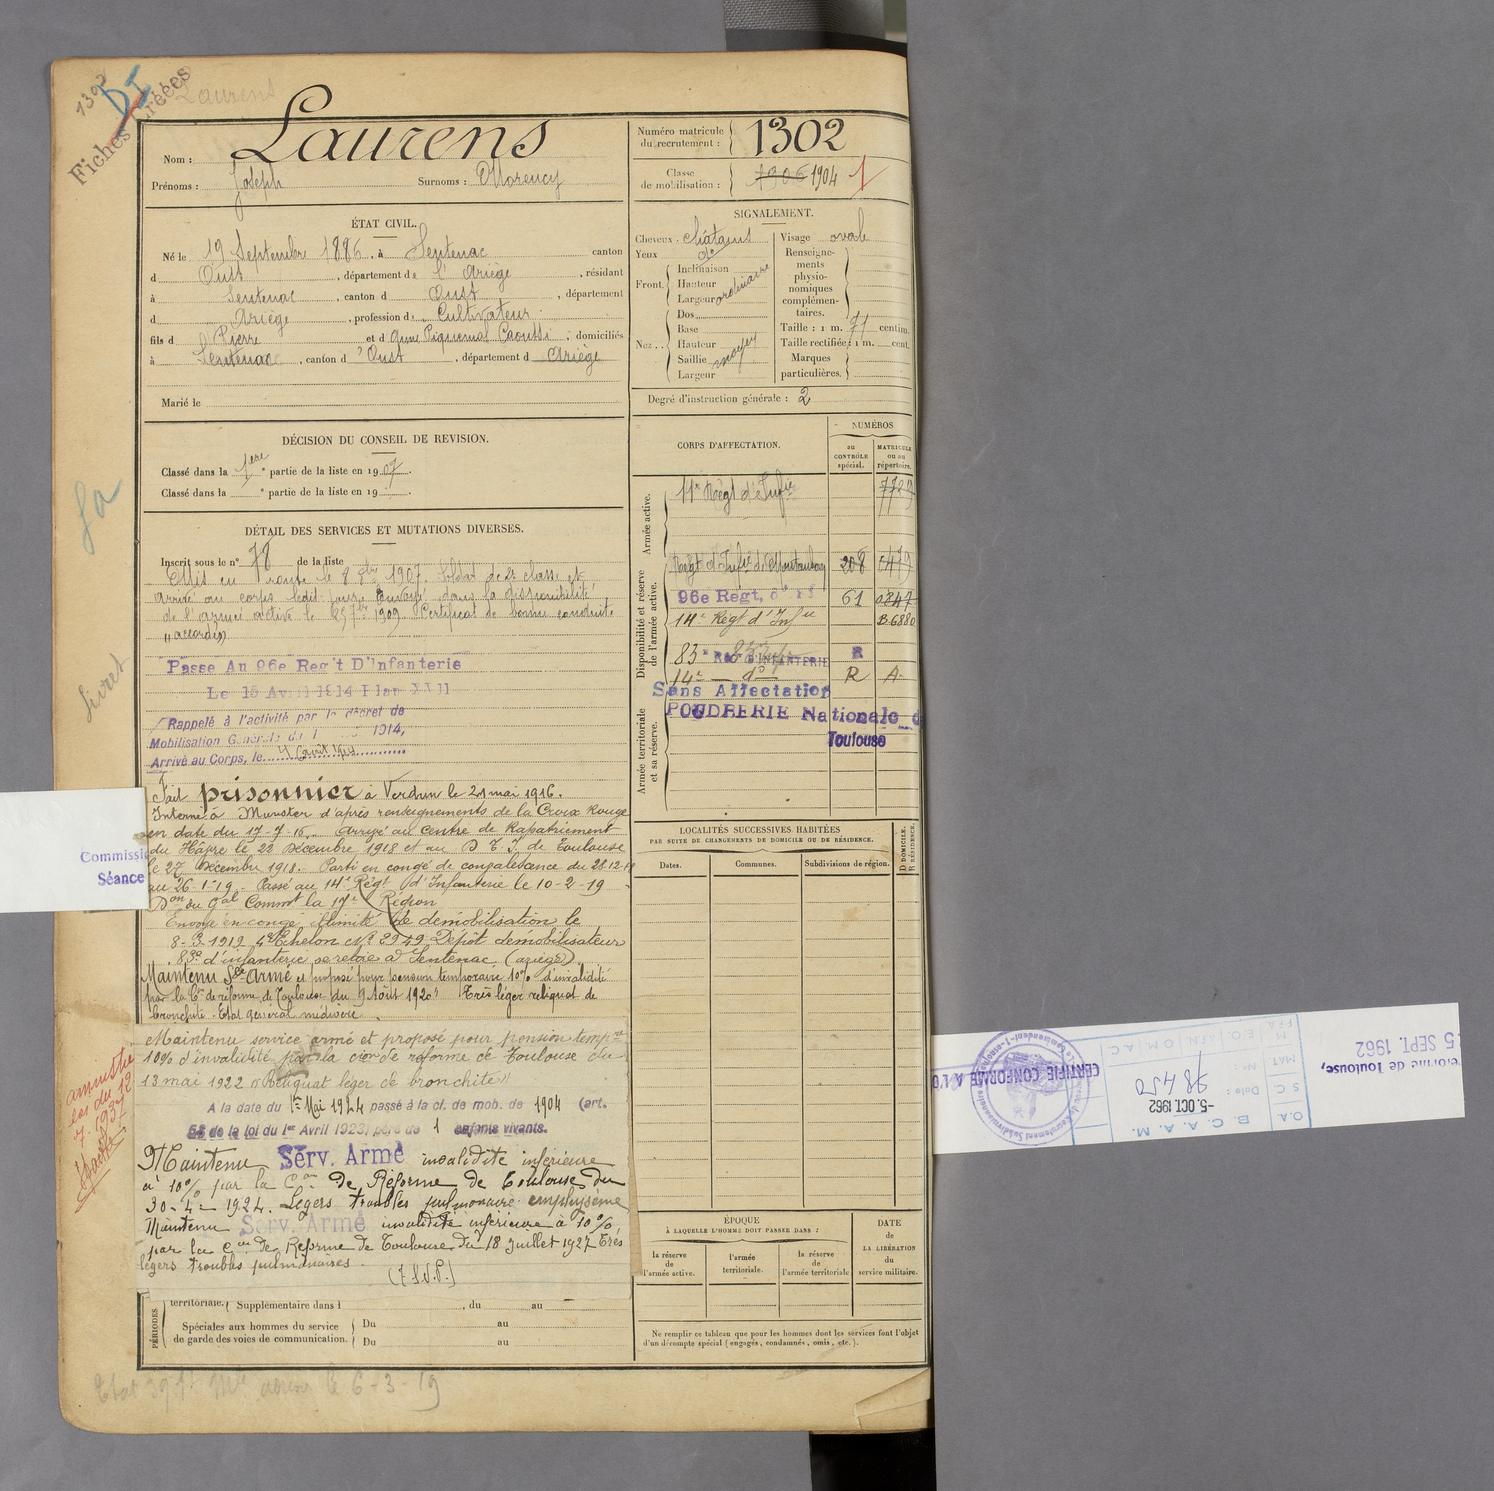 1302
DI
Fiches créées
Laurens
Nom : Laurens
Prénoms : Joseph Surnoms :
Numéro matricule du recrutement : 1302
Classe de mobilisation : 1906 1904 1
ÉTAT CIVIL.
Né le 19 Septembre 1886, à Sentenac canton
d Oust, département de l'Ariège, résidant
à Sentenac, canton d Oust, département
d Ariège, profession de Cultivateur
fils d Pierre et d Anne Piquemal Caoussi, domiciliés
à Sentenac, canton d'Oust, département d Ariège
Marié le
SIGNALEMENT.
Cheveux châtains
Yeux do
Front. Inclinaison
Hauteur
Largeur ordinaire
Nez .. Dos
Base
Hauteur
Saillie moyen
Largeur
Visage ovale
Renseignements physionomiques complémentaires.
Taille : 1 m. 71 centim.
Taille rectifiée : 1 m. cent.
Marques particulières.
Degré d'instruction générale : 2
DÉCISION DU CONSEIL DE REVISION.
Classé dans la 1ère partie de la liste en 1907.
Classé dans la e partie de la liste en 19
DÉTAIL DES SERVICES ET MUTATIONS DIVERSES.
Inscrit sous le n° 78 de la liste
Mis en route le 8 8bre 1907. Soldat de 2e classe et
arrivé au corps ledit jour. Envoyé dans la disponibilité
de l'armée active le 25 7bre 1909. Certificat de bonne conduite
"accordé"
Passe Au 96e Reg't D'Infanterie
Le 15 Avril 1914 Plan XVII
Rappelé à l'activité par le décret de
Mobilisation Générale du 1 1914,
Arrivé au Corps, le 4 Août 1914
Fait prisonnier à Verdun le 21 mai 1916.
Interné à Munster d'après renseignements de la Croix Rouge
en date du 17-7-16. Arrivé au Centre de Rapatriement
du Hâvre le 22 Décembre 1918 et au D T I. de Toulouse
le 27 Décembre 1918. Parti en congé de convalescence du 28-12-18
au 26-1-19. Passé au 14e Régt d'Infanterie le 10-2-19
Don du Gal Commt la 17e Région
Envoyé en congé illimité de démobilisation le
8-3-1919 4e Echelon No 2949 Dépôt démobilisateur
83e d'infanterie se retire à Sentenac (ariège)
Maintenu Sce Armé et proposé pour pension temporaire 10% d'invalidité
par la Con de réforme de Toulouse du 9 Août 1920 "Très léger reliquat de
bronchite - Etat général médiocre.
Maintenu service armé et proposé pour pension tempre
10% d'invalidité par la Cion de réforme de Toulouse du
13 mai 1922 "Reliquat léger de bronchite"
A la date du 1er Mai 1924 passé à la cl. de mob. de 1904 (art.
58 de la loi du 1er Avril 1923) père de 1 enfants vivants.
Maintenu Serv. Armé invalidité inférieure
à 10% par la Con de Réforme de Toulouse du
30-4-1924. Légers troubles pulmonaire emphysème
Maintenu Serv. Armé invalidité inférieure à 10%
par la Con de Réforme de Toulouse du 18 Juillet 1927 Très
légers troubles pulmonaires.
(T.S.V.P.)
territoriale. Supplémentaire dans l , du au
PÉRIODES
Spéciales aux hommes du service de garde des voies de communication. Du au
Du au
CORPS D'AFFECTATION.
NUMÉROS
au CONTRÔLE spécial.
MATRICULE ou au répertoire.
Armée active.
14e Régt d'Infie 7729
Disponibilité et réserve de l'armée active.
Régt d'Infie de Montauban 208
96e Regt, 61 0847
14e Régt d'Infie B.6880
83e Rég. D'INFANTERIE R
14e - do R A.
Sans Affectation
POUDRERIE Nationale d
Toulouse
Armée territoriale et sa réserve.
LOCALITÉS SUCCESSIVES HABITÉES
PAR SUITE DE CHANGEMENTS DE DOMICILE OU DE RÉSIDENCE.
Dates.
Communes.
Subdivisions de région.
D DOMICILE.
R RÉSIDENCE.
ÉPOQUE
À LAQUELLE L'HOMME DOIT PASSER DANS :
la réserve de l'armée active.
l'armée territoriale.
la réserve de l'armée territoriale
DATE de LA LIBÉRATION du service militaire.
Ne remplir ce tableau que pour les hommes dont les services font l'objet
d'un décompte spécial (engagés, condamnés, omis, etc.).
Livret
Commissi
Séance
amnistie
loi du 12
7. 1937
6-3-19
eforme de Toulouse,
5 SEPT. 1962
B. C. A. A. M.
-5. OCT. 1962
98450
Date :
No :
CERTIFIÉ CONFORME A L'O